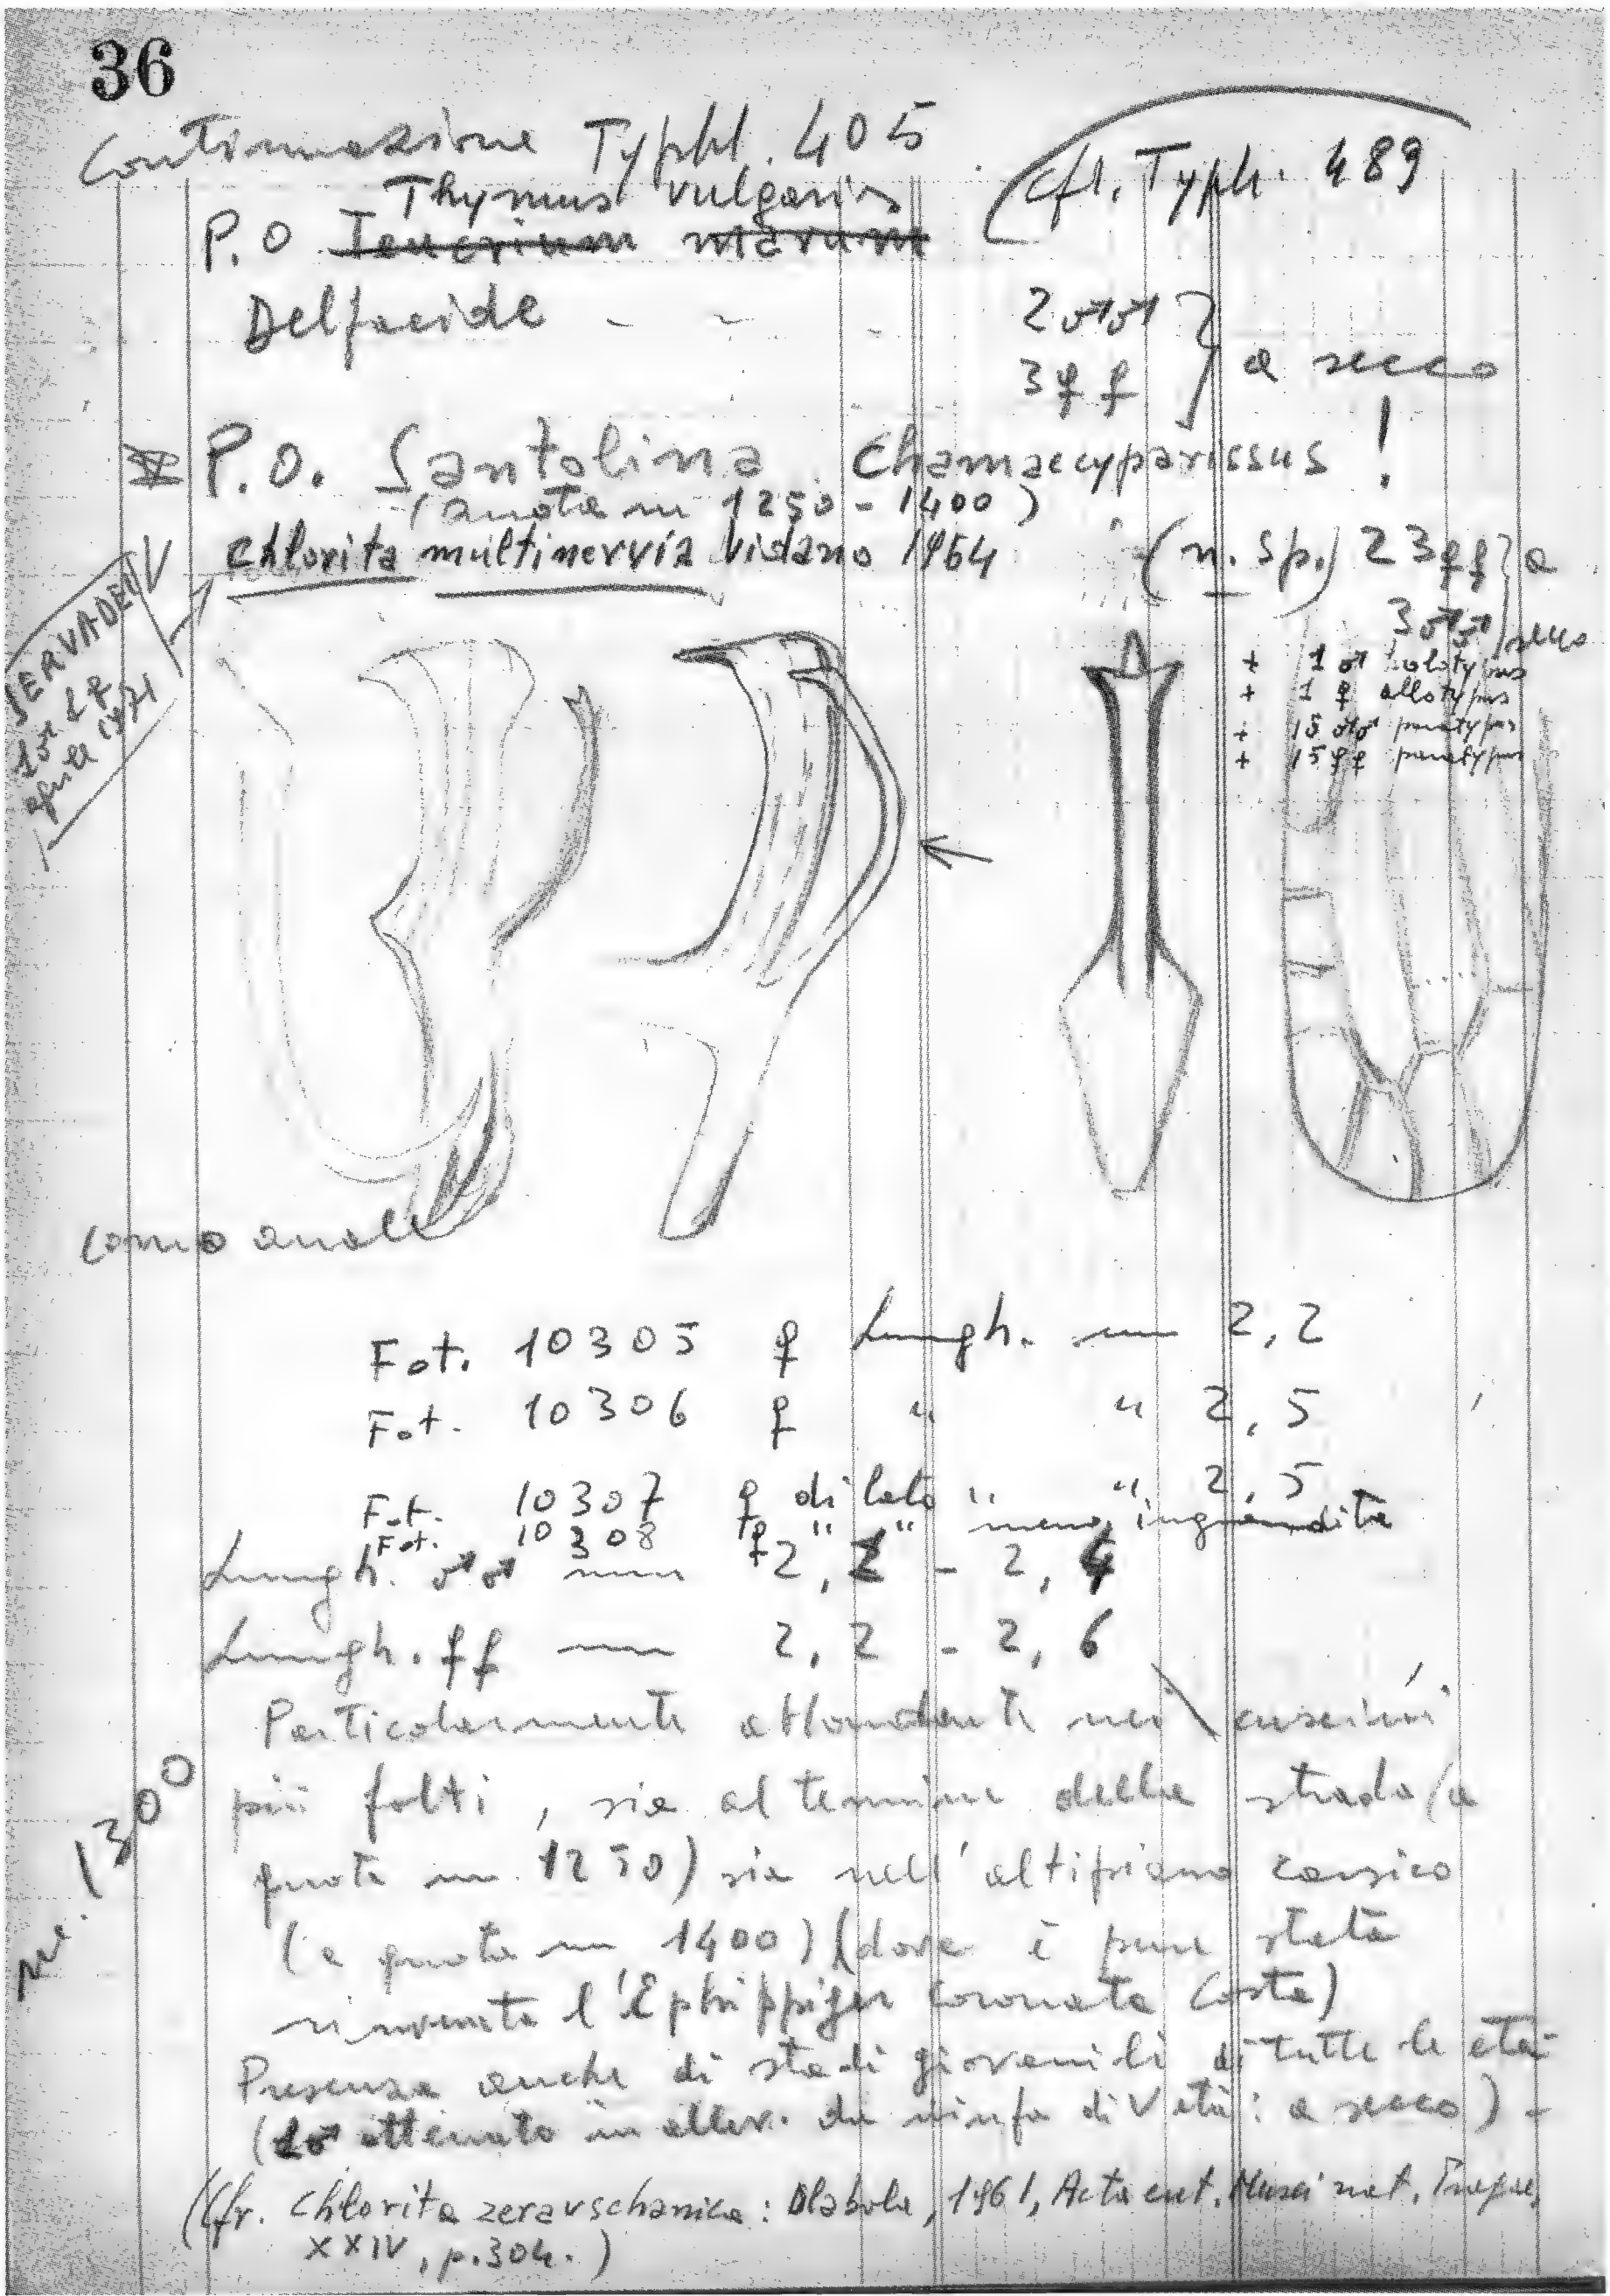 36
Continuazione Typhl. 405
(cfr. Typh. 489
Thymus vulgaris
P.O Teucrium marum
Delfacide - - -
2♂♂ }
3♀♀ } a secco
P.O. Santolina Chamaecyparissus !
(quota m 1250 - 1400)
Chlorita multinervia Vidano 1964 (n. sp.) 23♀♀ } a
3♂♂ } secco
+ 1 ♂ holotypus
+ 1 ♀ allotypus
+ 15 ♂♂ paratypus
+ 15 ♀♀ paratypus
SERVADEI
1♂ 1♀
aprile 1971
cono anale
Fot. 10305 ♀ Lungh. mm 2,2
Fot. 10306 ♀ " " 2,5
Fot. 10307 ♀ di lato " " 2,5
Fot. 10308 ♀ " " meno ingrandita
Lungh. ♂♂ mm 2,2 - 2,4
Lungh. ♀♀ mm 2,2 - 2,6
Particolarmente abbondante nei cuscini
più folti, sia al termine della strada (a
quota m 1250) sia nell'altipiano carsico
m. 1300
(a quota m 1400) (dove è pure stata
rinvenuta l'Ephippiger coronata Costa)
Presenza anche di stadi giovanili di tutte le età
(1♂ ottenuto in allev. da ninfa di V età: a secco) -
(Cfr. Chlorita zeravschanica: Dlabola, 1961, Acta ent. Musei nat. Pragae,
XXIV, p. 304.)